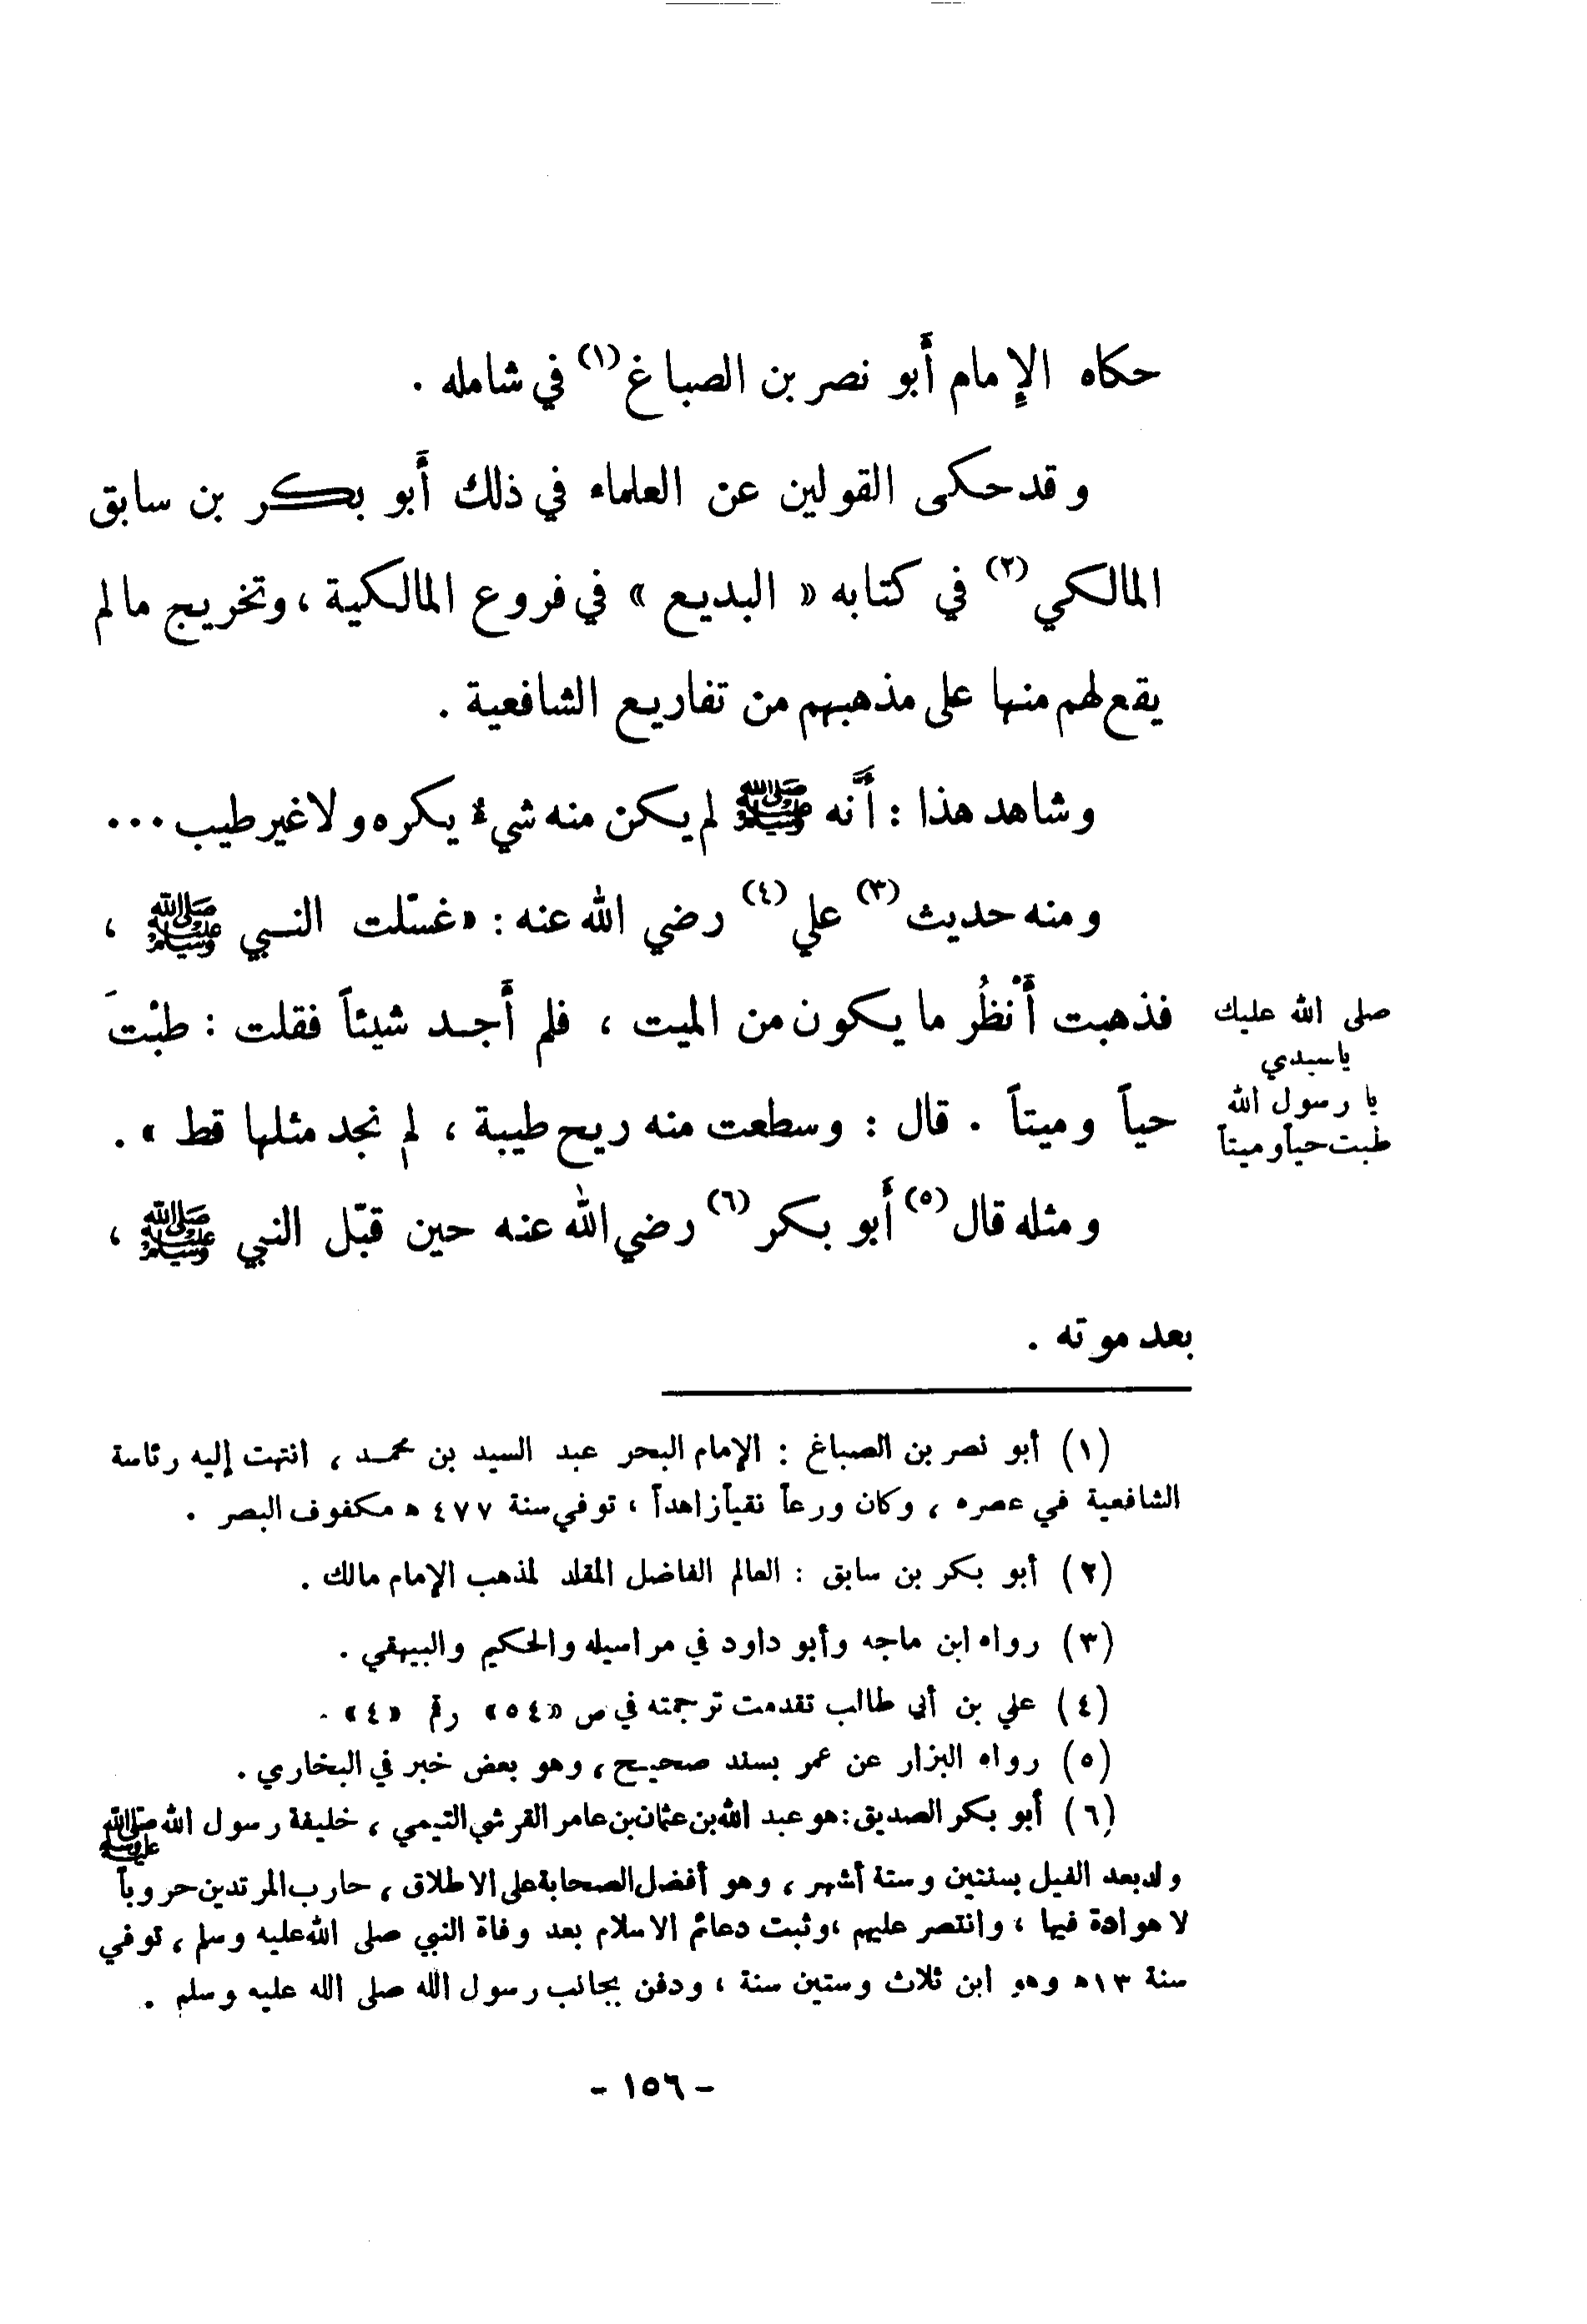 حكاه الإمام أبو نصر بن الصباغ (١) في شامله .
وقد حكى القولين عن العلماء في ذلك أبو بكر بن سابق
المالكي (٢) في كتابه « البديع » في فروع المالكية ، وتخريج ما لم
يقع لهم منها على مذهبهم من تفاريع الشافعية .
وشاهد هذا : أَنَّه ﷺ لم يكن منه شيءٌ يكره ولا غير طيب ...
ومنه حديث (٣) علي (٤) رضي الله عنه : « غسّلت النبي ﷺ ،
فذهبت أَنْظُر ما يكون من الميت ، فلم أَجد شيئاً فقلت : طبْتَ
حياً وميتاً . قال : وسطعت منه ريح طيبة ، لم نجد مثلها قط » .
صلى الله عليك
يا سيدي
يا رسول الله
طبت حياً وميتاً
ومثله قال (٥) أَبو بكر (٦) رضي الله عنه حين قبّل النبي ﷺ ،
بعد موته .
(١) أبو نصر بن الصباغ : الإمام البحر عبد السيد بن محمد ، انتهت إليه رئاسة
الشافعية في عصره ، وكان ورعاً نقياً زاهداً ، توفي سنة ٤٧٧ ه مكفوف البصر .
(٢) أبو بكر بن سابق : العالم الفاضل المقلد لمذهب الإمام مالك .
(٣) رواه ابن ماجه وأبو داود في مراسيله والحكيم والبيهقي .
(٤) علي بن أبي طالب تقدمت ترجمته في ص «٥٤» رقم «٤» .
(٥) رواه البزار عن عمر بسند صحيح ، وهو بعض خبر في البخاري .
(٦) أبو بكر الصديق : هو عبد الله بن عثمان بن عامر القرشي التيمي ، خليفة رسول الله ﷺ
ولد بعد الفيل بسنتين وستة أشهر ، وهو أفضل الصحابة على الاطلاق ، حارب المرتدين حروباً
لا هوادة فيها ، وانتصر عليهم ، وثبت دعائم الاسلام بعد وفاة النبي صلى الله عليه وسلم ، توفي
سنة ١٣ه وهو ابن ثلاث وستين سنة ، ودفن بجانب رسول الله صلى الله عليه وسلم .
- ١٥٦ -